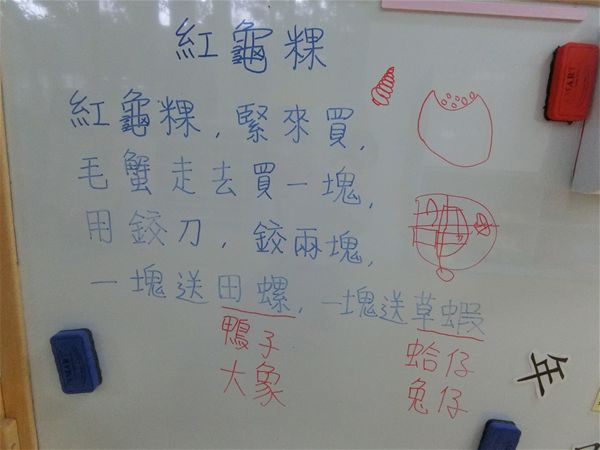 紅龜粿
紅龜粿,緊來買,
毛蟹走去買一塊,
用鉸刀,鉸兩塊,
一塊送田螺,一塊送草蝦
鴨子 蛤仔
大象 兔仔
年